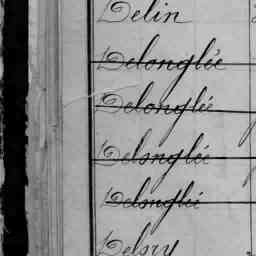 Delin
Delonglée
Delonglée
Delonglée
Delonglée
Delory